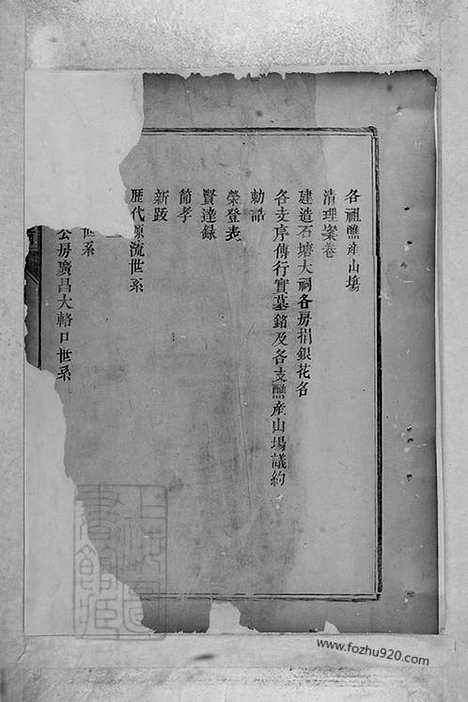 各祖醮產山塲
清理案卷
建造石塘大祠各房捐銀花名
各支序傳行實墓銘及各支醮產山塲議約
勅誥
榮登表
賢達録
節孝
新跋
歷代源流世系
世系
公房廣昌大輅口世系
www.fozhu920.com